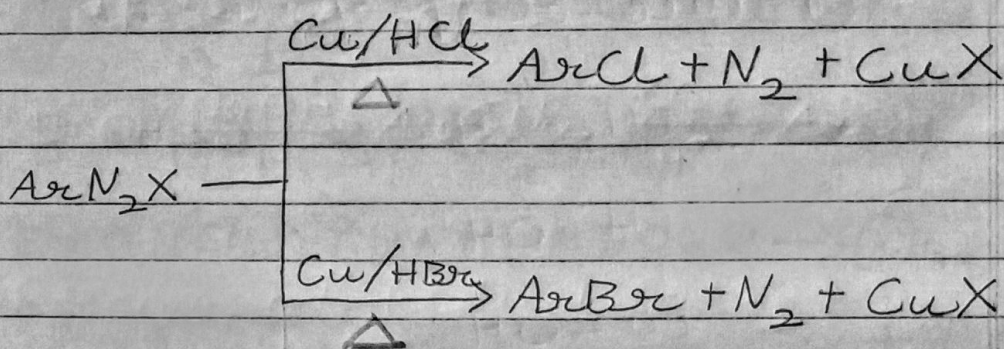 Cu/HCl
△
ArCl + N₂ + CuX
ArN₂X
Cu/HBr
△
ArBr + N₂ + CuX